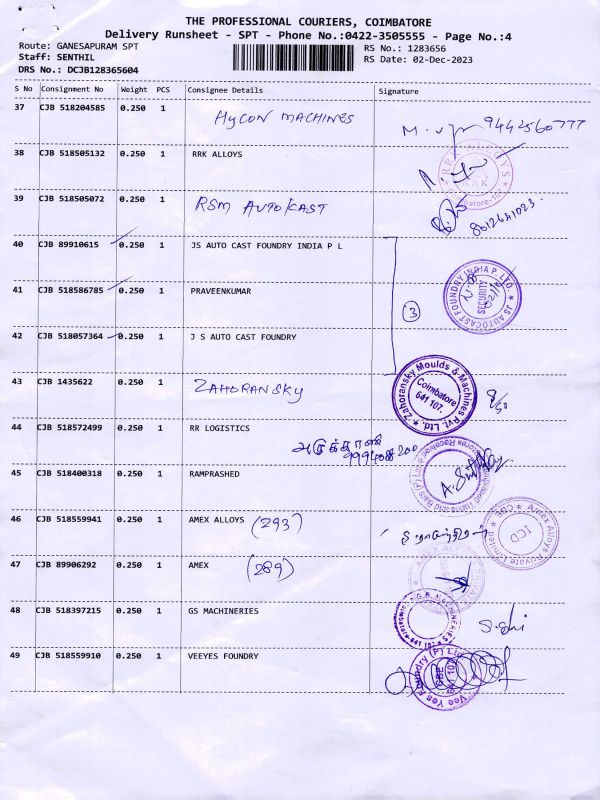 THE PROFESSIONAL COURIERS, COIMBATORE
Delivery Runsheet - SPT - Phone No.:0422-3505555 - Page No.:4
Route: GANESAPURAM SPT
Staff: SENTHIL
DRS No.: DCJB128365604
RS No.: 1283656
RS Date: 02-Dec-2023
S No Consignment No Weight PCS Consignee Details Signature
37 CJB 518204585 0.250 1 HYCON MACHINES 9442560777
38 CJB 518505132 0.250 1 RRK ALLOYS
39 CJB 518505072 0.250 1 RSM AUTO/CAST 8012641023
40 CJB 89910615 0.250 1 JS AUTO CAST FOUNDRY INDIA P L
41 CJB 518586785 0.250 1 PRAVEENKUMAR
JS AUTOCAST FOUNDRY INDIA P. LTD.
SECURITY
3
42 CJB 518057364 0.250 1 J S AUTO CAST FOUNDRY
43 CJB 1435622 0.250 1 ZAHORANSKY
Zahoransky Moulds & Machines Pvt. Ltd.
Coimbatore
641 107.
44 CJB 518572499 0.250 1 RR LOGISTICS
45 CJB 518400318 0.250 1 RAMPRASHED
46 CJB 518559941 0.250 1 AMEX ALLOYS (293)
Amex Alloys Private Limited CBE
47 CJB 89906292 0.250 1 AMEX (289)
48 CJB 518397215 0.250 1 GS MACHINERIES
49 CJB 518559910 0.250 1 VEEYES FOUNDRY
Vee Yes Foundry (P) Ltd
CBE
641 107